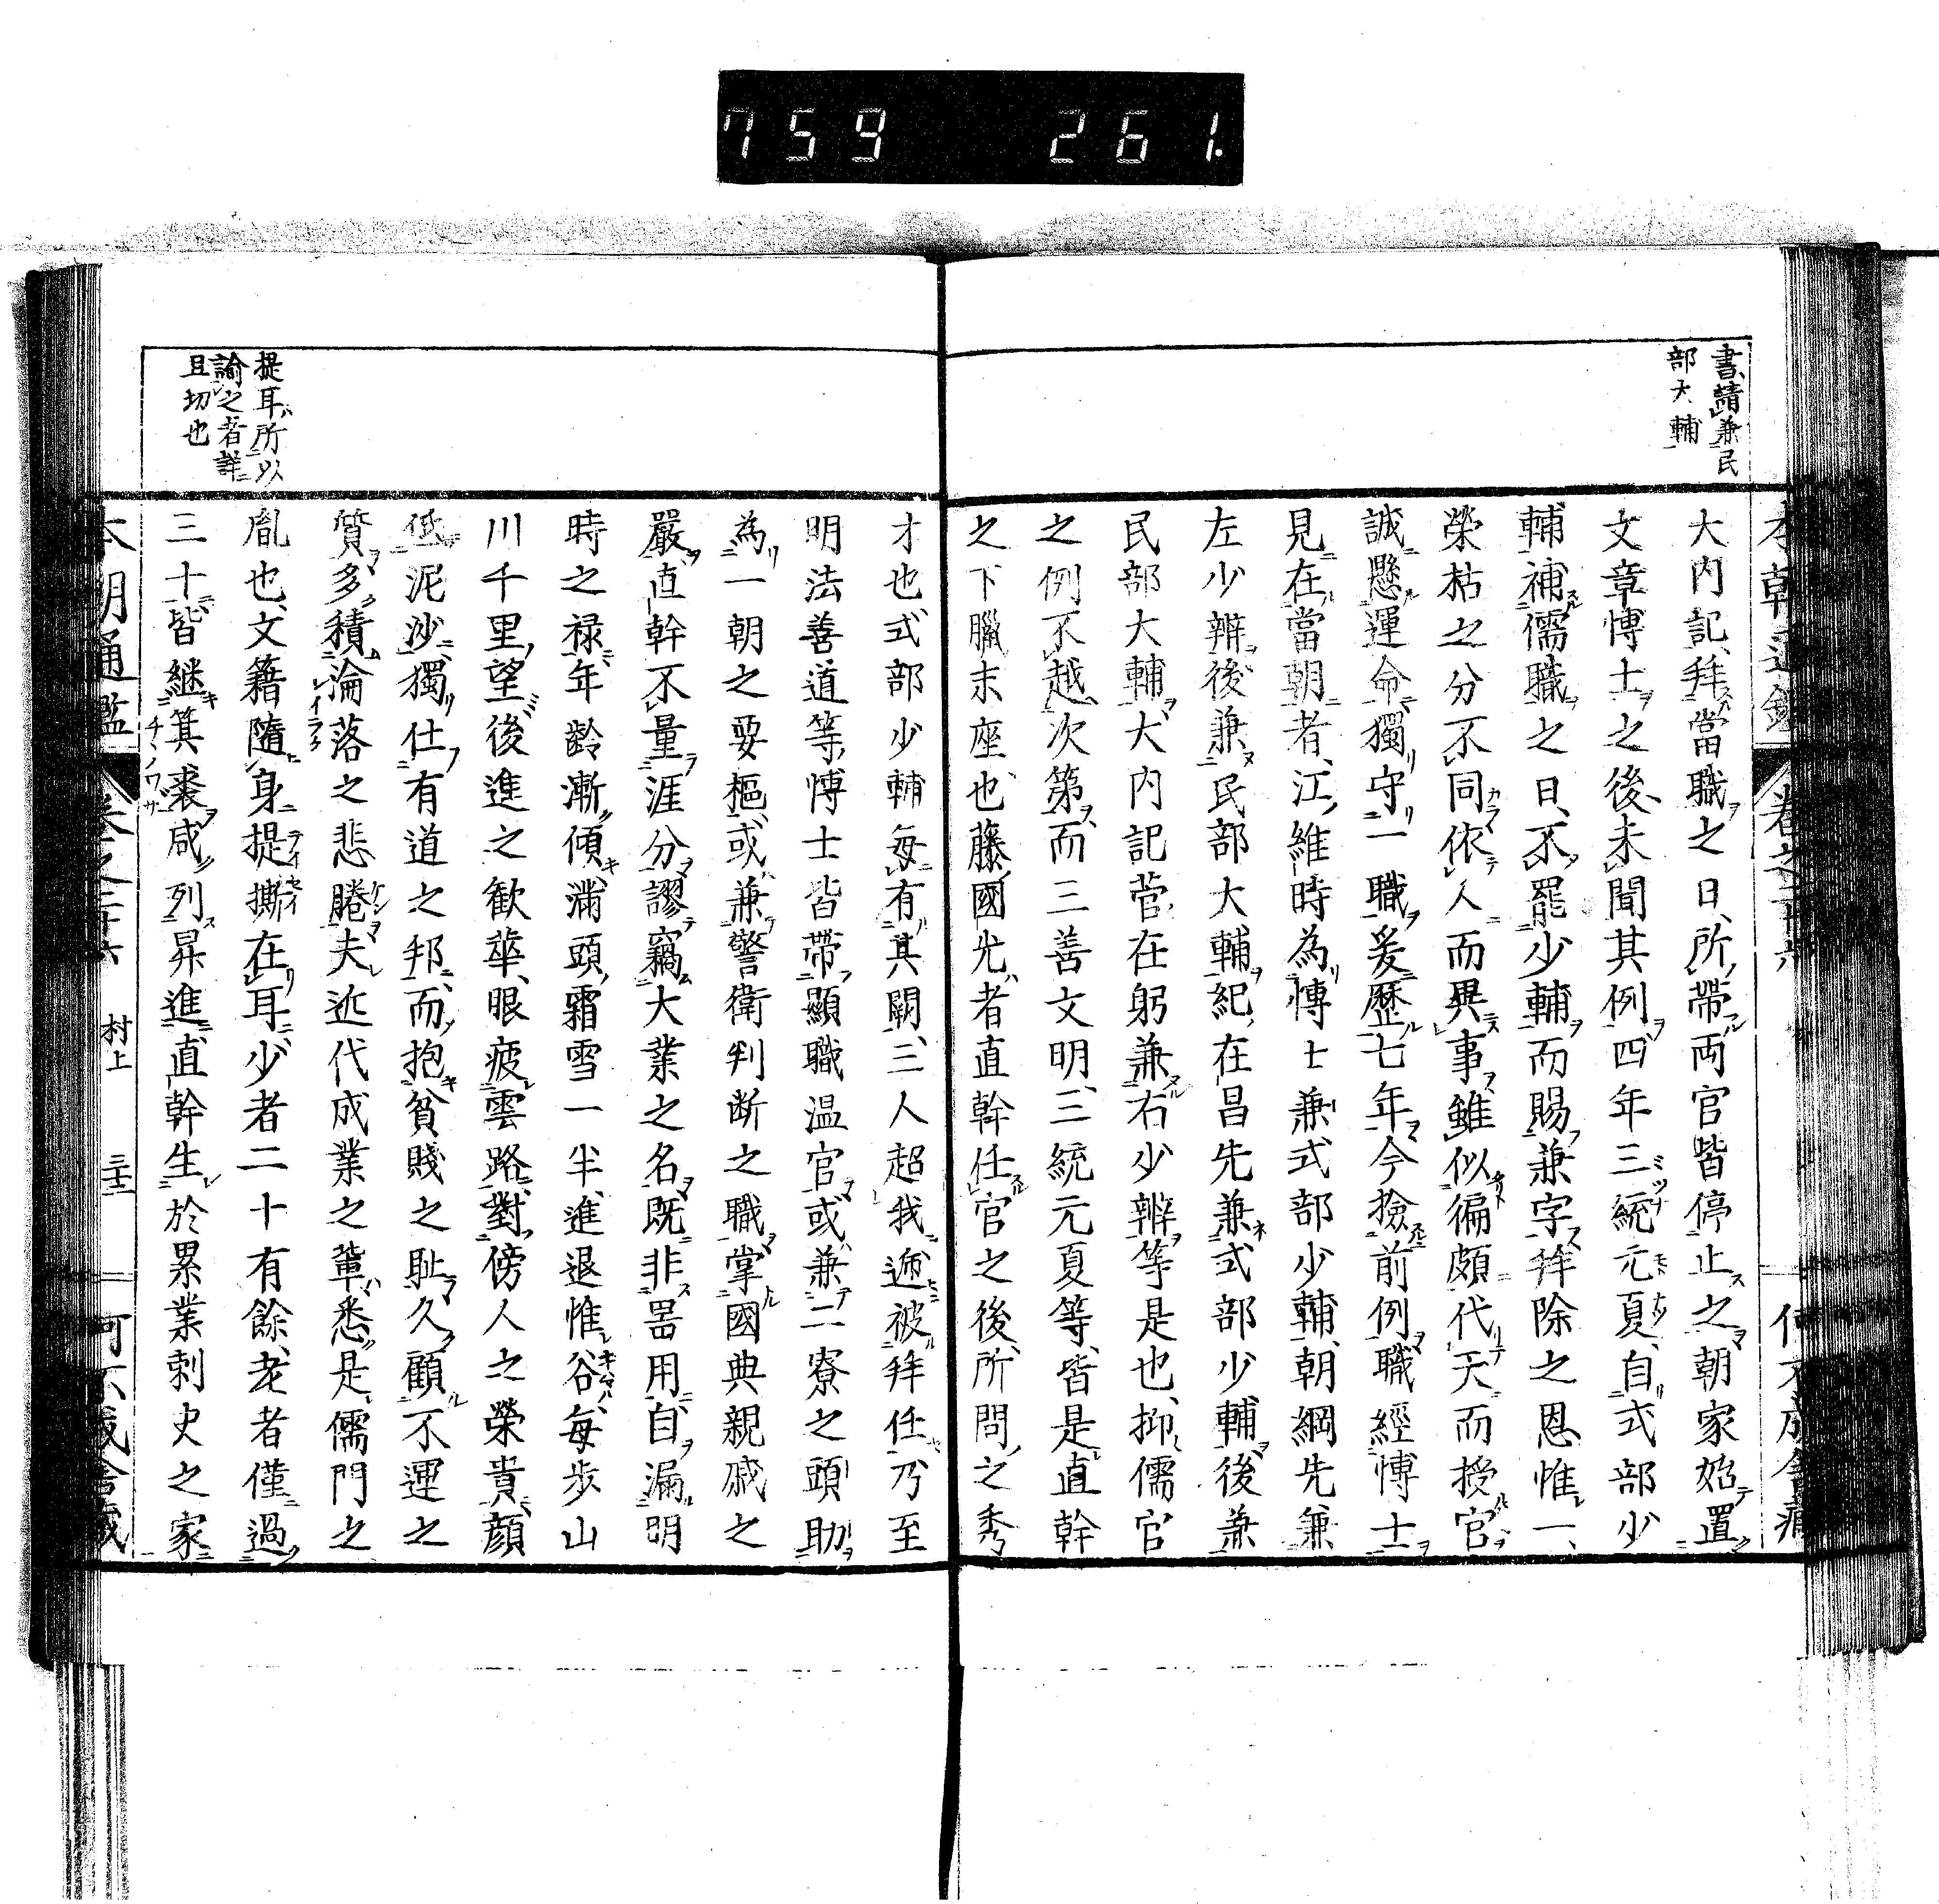 759 261.
書請兼民
部大輔
大内記拜當職之日所帶兩官皆停止之朝家始置
文章博士之後未聞其例四年三統元夏自式部少
輔補儒職之日不罷少輔而賜兼字拜除之恩惟一
榮枯之分不同依人而異事雖似偏頗代天而授官
誠懸運命獨守一職爰歷七年今撿前例職經博士
見在當朝者江維時為博士兼式部少輔朝綱先兼
左少辨後兼民部大輔紀在昌先兼式部少輔後兼
民部大輔大内記菅在躬兼右少辨等是也抑儒官
之例不越次第而三善文明三統元夏等皆是直幹
之下臘末座也藤國光者直幹任官之後所問之秀
才也式部少輔每有其闕三人超我遞被拜任乃至
明法善道等博士皆帶顯職温官或兼二寮之頭助
為一朝之要樞或兼警衛判断之職掌國典親戚之
嚴直幹不量涯分謬竊大業之名既非噐用自漏明
時之禄年齡漸傾滿頭霜雪一半進退惟谷每步山
川千里望後進之歡華眼疲雲路對傍人之榮貴顔
低泥沙獨仕有道之邦而抱貧賤之耻久顧不運之
質多積淪落之悲睠夫近代成業之輩悉是儒門之
胤也文籍隨身提撕在耳少者二十有餘老者僅過
三十皆継箕裘咸列昇進直幹生於累業刺史之家
提耳所以
諭之者詳
且切也
村上 三十三